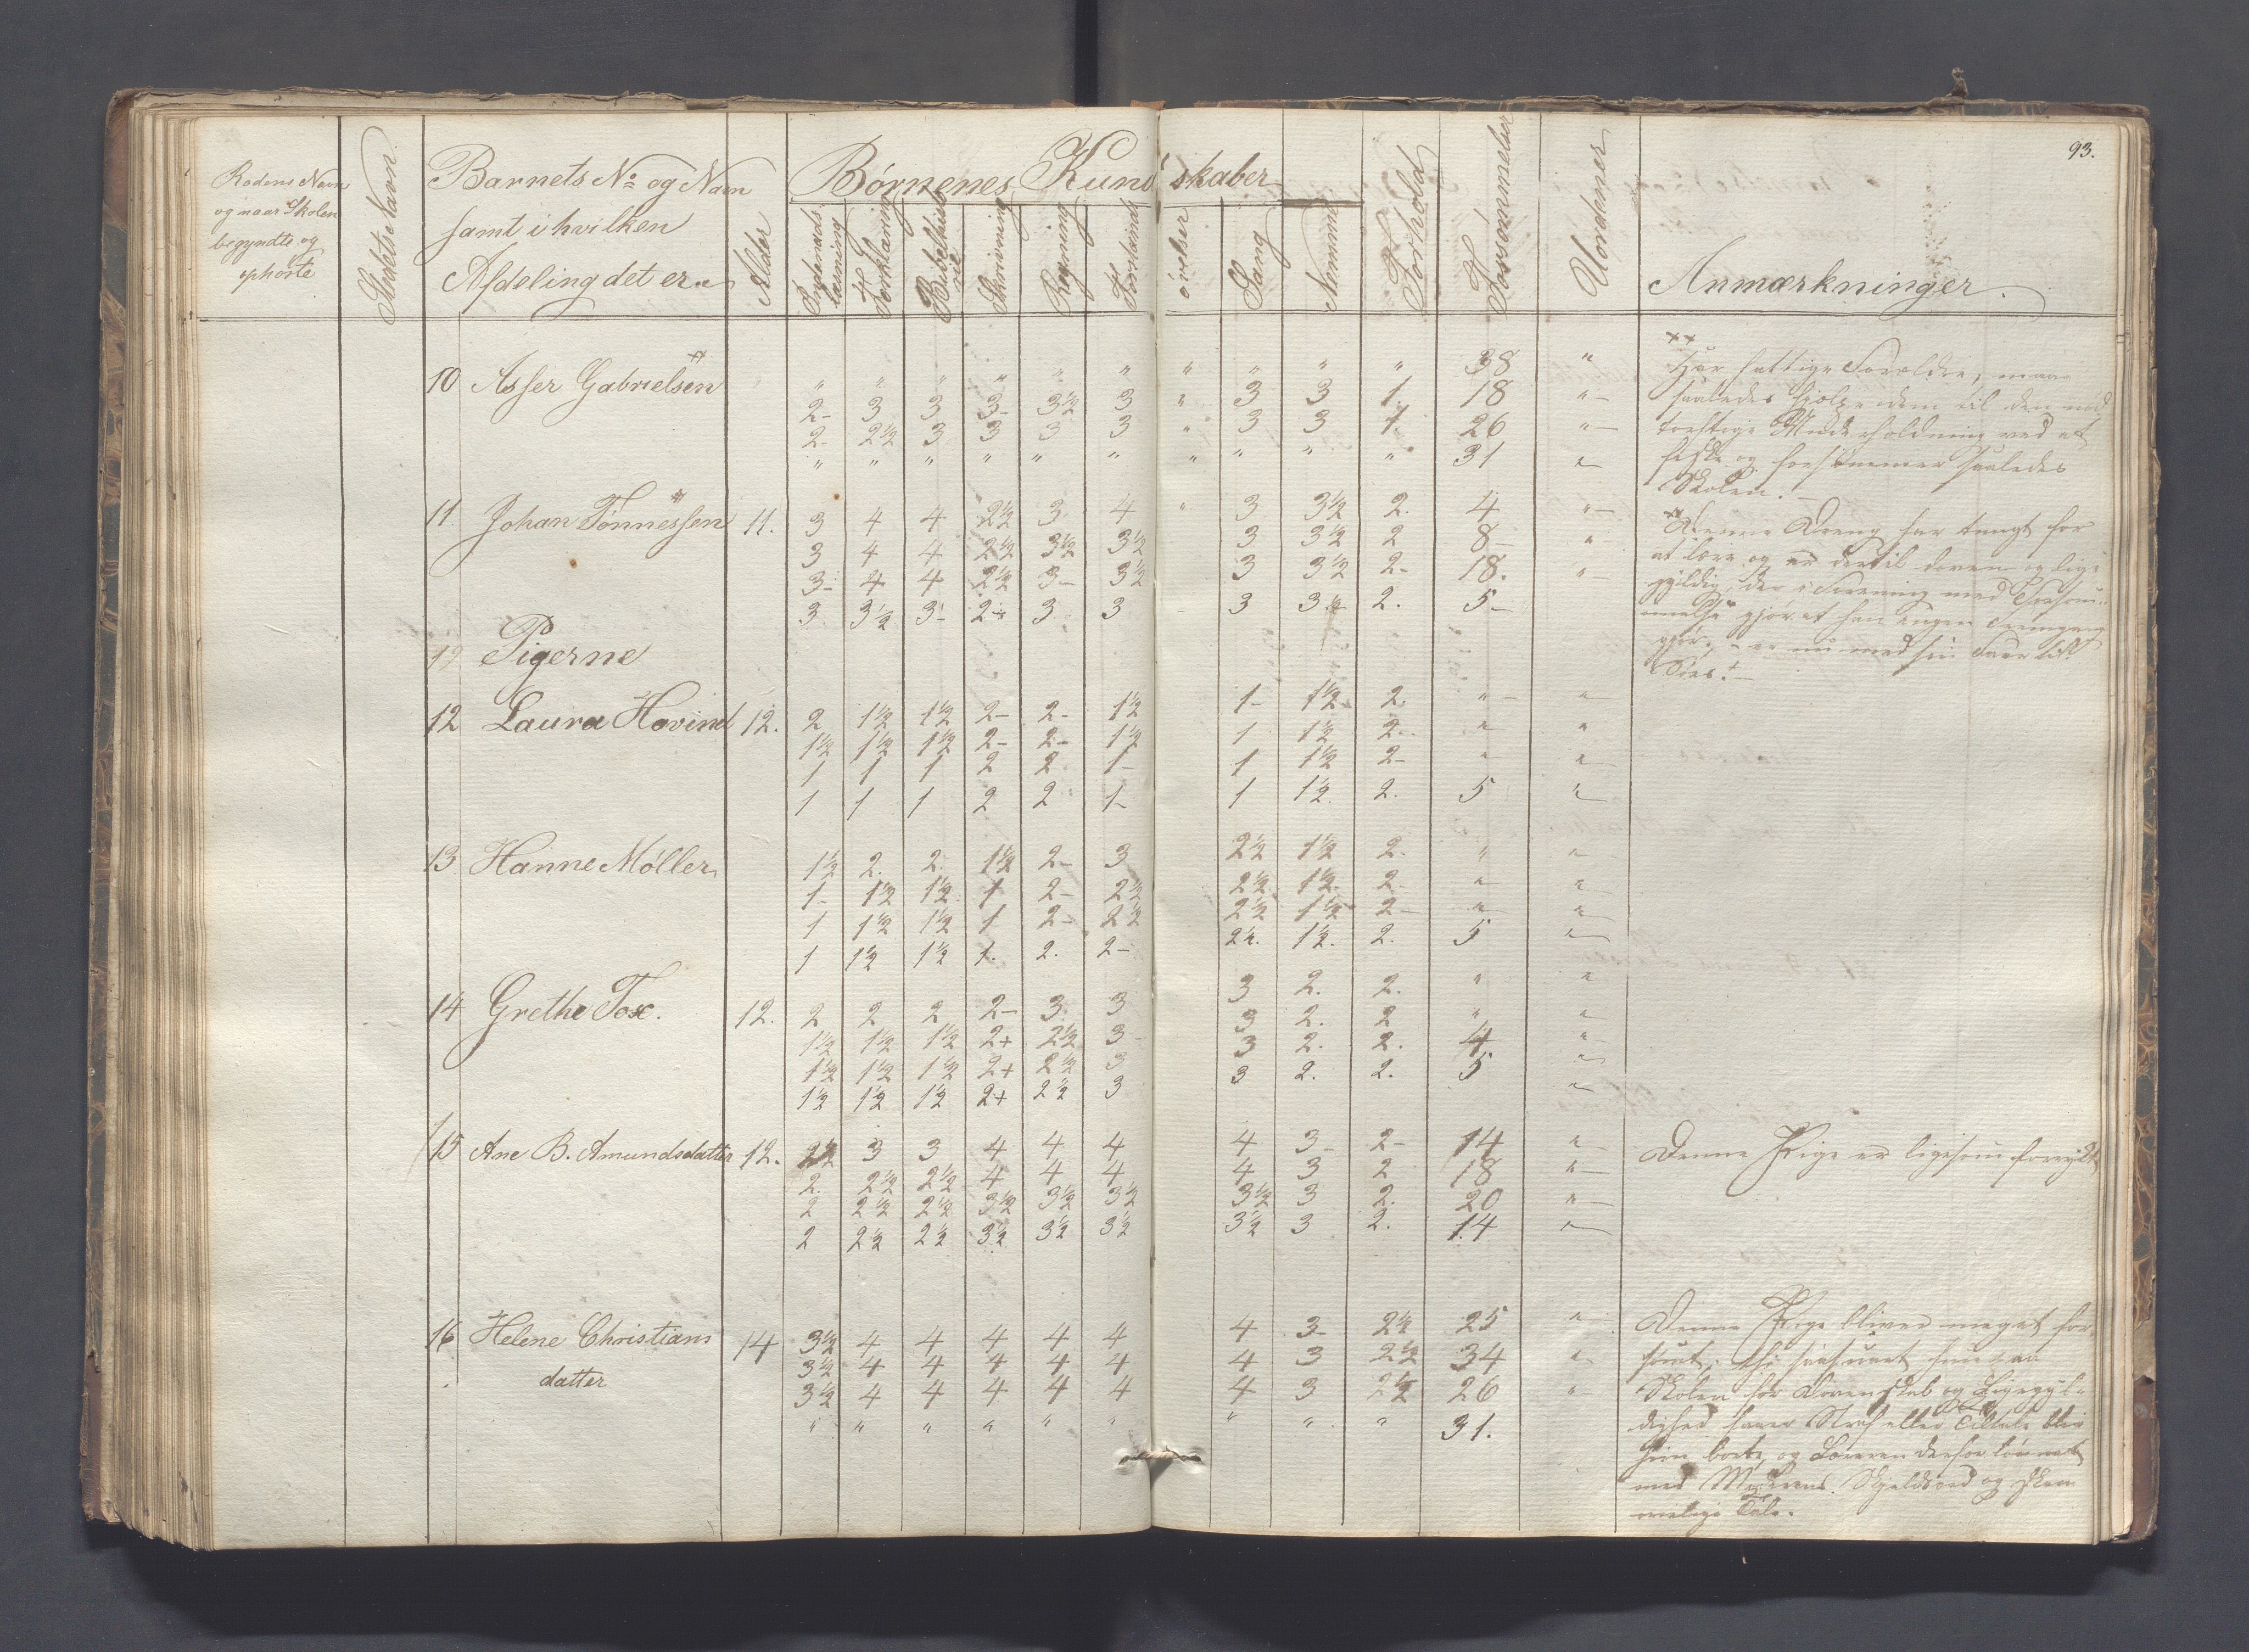 93.
Rodens Navn
og naar Skolen
begyndte og
ophørte
Stedets Navn.
Barnets No og Navn
samt i hvilken
Afdeling det er
Alder
Børnenes Kundskaber
Indenads-
læsning
Forklaring
Bibelhisto
rie
Skrivning
Regning
Forstands
øvelser
Sang
Nemme
Forhold
Forsømmelser
Uordener
Anmærkninger.
10 Asser Gabrielsen " " " " " " " " " " 38 "
2- 3 3 3- 3½ 3 " 3 3 1. 18 "
2- 2½ 3 3 3 3 " 3 3 1 26 "
" " " " " " " " " " 31 "
Har fattige Forældre, maa
saaledes hjelpe dem til den nød
tørftige Underholdning ved at
fiske og forsømmer saaledes
Skolen.
11 Johan Tønnessen 11. 3 4 4 2½ 3 4 " 3 3½ 2. 4 "
3 4 4 2½ 3½ 3½ 3 3½ 2 8- "
3- 4 4 2½ 3- 3½ 3 3½ 2- 18. "
3 3½ 3- 2- 3 3 3 3 2. 5-
Denne Dreng har tungt for
at lære og er dertil doven og lige
gyldig, der i Forening med Forsøm-
melse gjør at han ingen Fremgang
gjør, er nu med sin Fader til
Søes.
Pigerne
12 Laura Hovind 12. 2 1½ 1½ 2- 2- 1½ 1- 1½ 2 " "
1½ 1½ 1½ 2- 2- 1½ 1 1½ 2. " "
1 1 1 2 2 1- 1 1½ 2- " "
1 1 1 2 2 1- 1 1½ 2. 5 "
13 Hanne Møller 1½ 2. 2. 1½ 2- 3 2½ 1½ 2. " "
1- 1½ 1½ 1 2- 2½ 2½ 1½ 2. " "
1 1½ 1½ 1 2- 2½ 2½ 1½ 2- " "
1 1½ 1½ 1. 2. 2- 2½. 1½. 2. 5 "
14 Grethe Fox. 12. 2 2 2 2- 3 3 3 2. 2. " "
1½ 1½ 1½ 2+ 2½ 3- 3 2. 2 " "
1½ 1½ 1½ 2+ 2½ 3 3 2. 2. 4 "
1½ 1½ 1½ 2+ 2½ 3 3 2. 2. 5 "
15 Ane B. Amundsdatter 12. 2½ 3 3 4 4 4 4 3- 2- 14 "
2. 2½ 2½ 4 4 4 4 3 2 18 "
2 2½ 2½ 3½ 3½ 3½ 3½ 3 2. 20 "
2 2½ 2½ 3½ 3½ 3½ 3½ 3 2. 14 "
Denne Pige er ligesom
16 Helene Christians 14 3½ 4 4 4 4 4 4 3- 2½ 25 "
datter 3½ 4 4 4 4 4 4 3 2½ 34 "
3½ 4 4 4 4 4 4 3 2½ 26 "
" " " " " " " " " 31.
Denne Pige bliver meget for
sømt, thi saasnart hun paa
Skolen for Dovenskab og Ligegyl-
dighed faaer Straf eller Tiltale bliver
hun borte, og Læreren derfor lønnet
med Moderens Skjeldsord og skam
melige Tale.